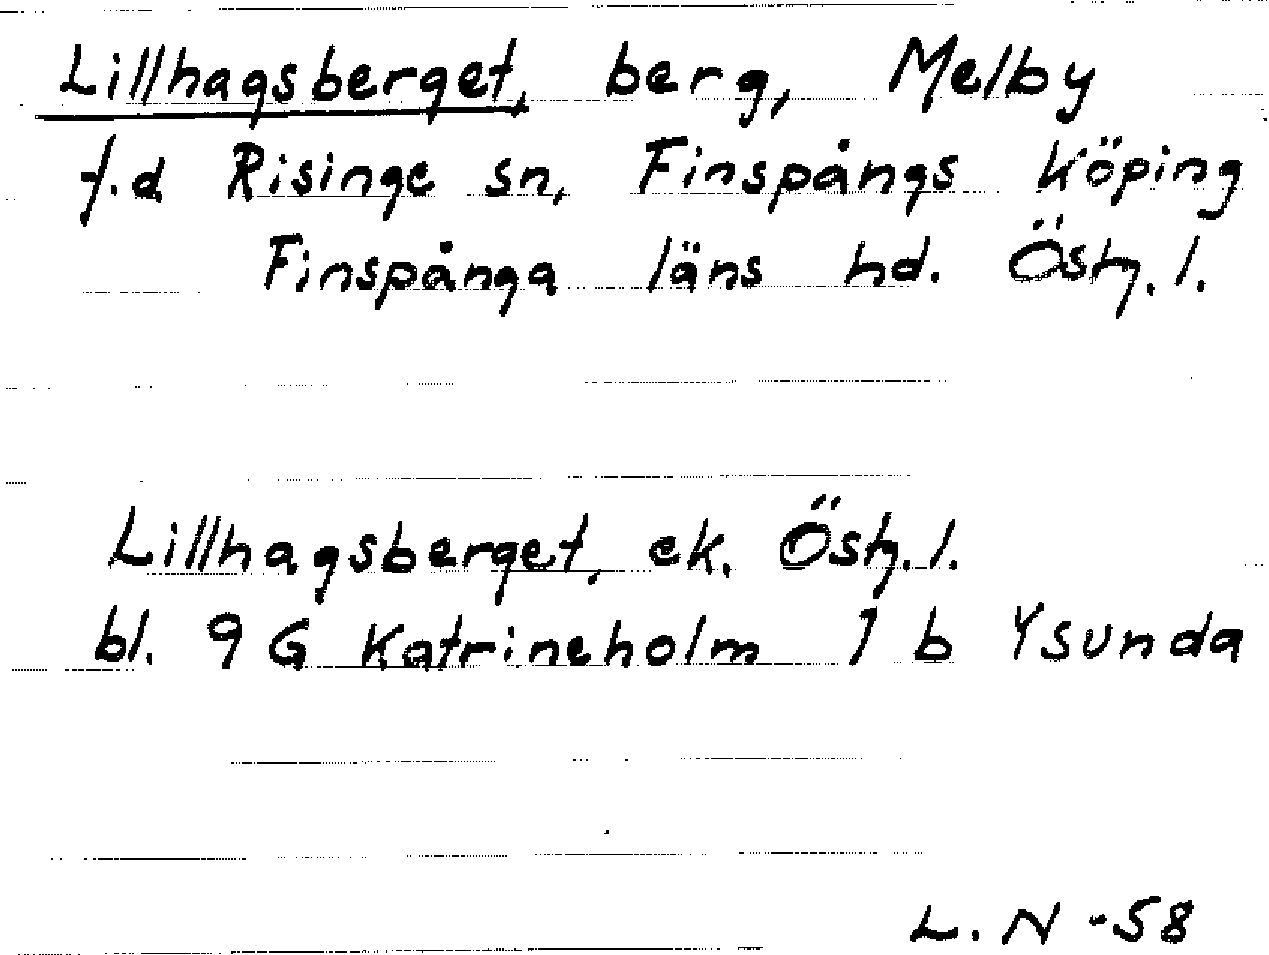 Lillhagsberget, berg, Melby
f.d Risinge sn, Finspångs köping
Finspånga läns hd. Östg. l.
Lillhagsberget, ek. Östg. l.
bl. 9 G Katrineholm 1 b Ysunda
L. N -58